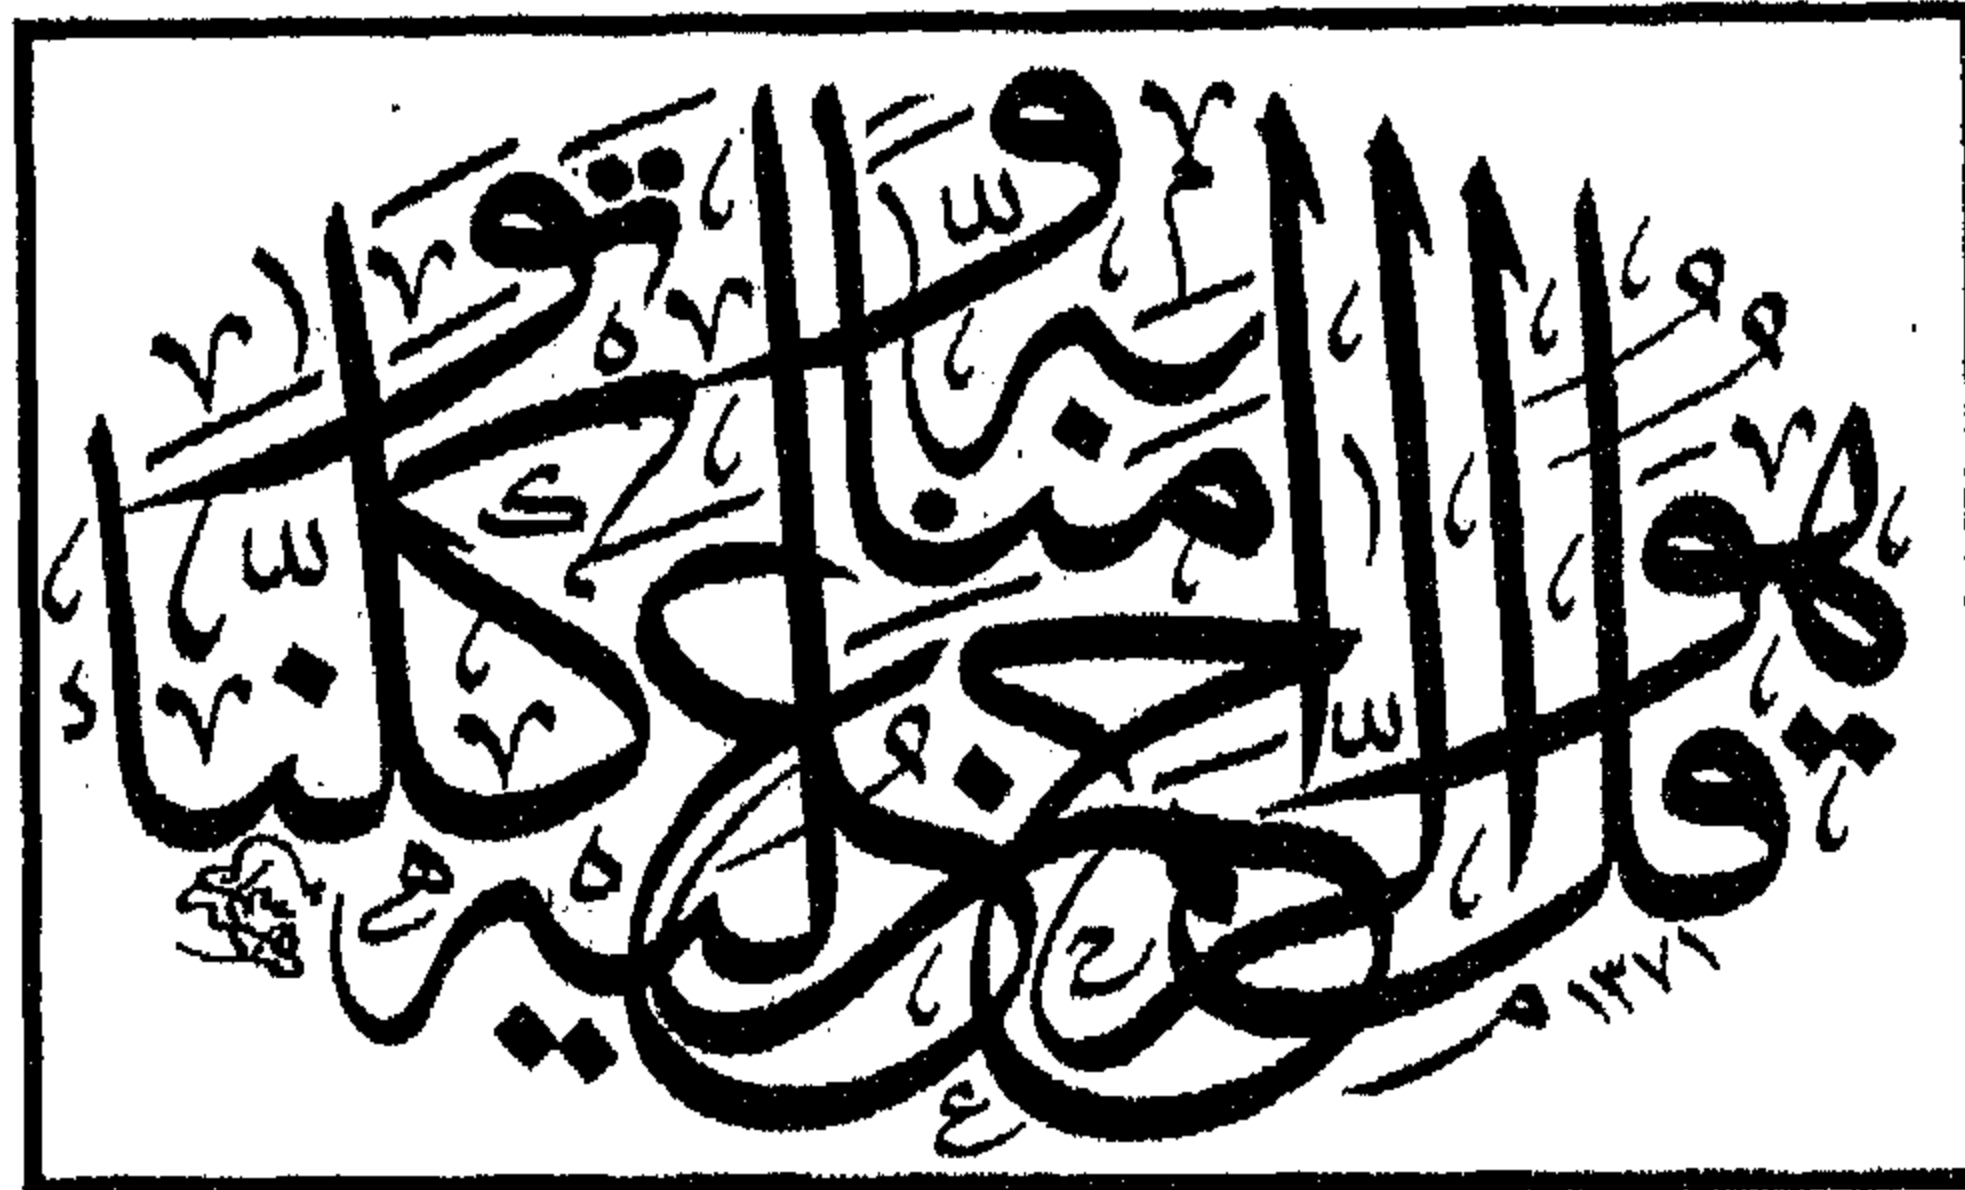 قل هو الرحمن آمنا به وعليه توكلنا
١٣٧١